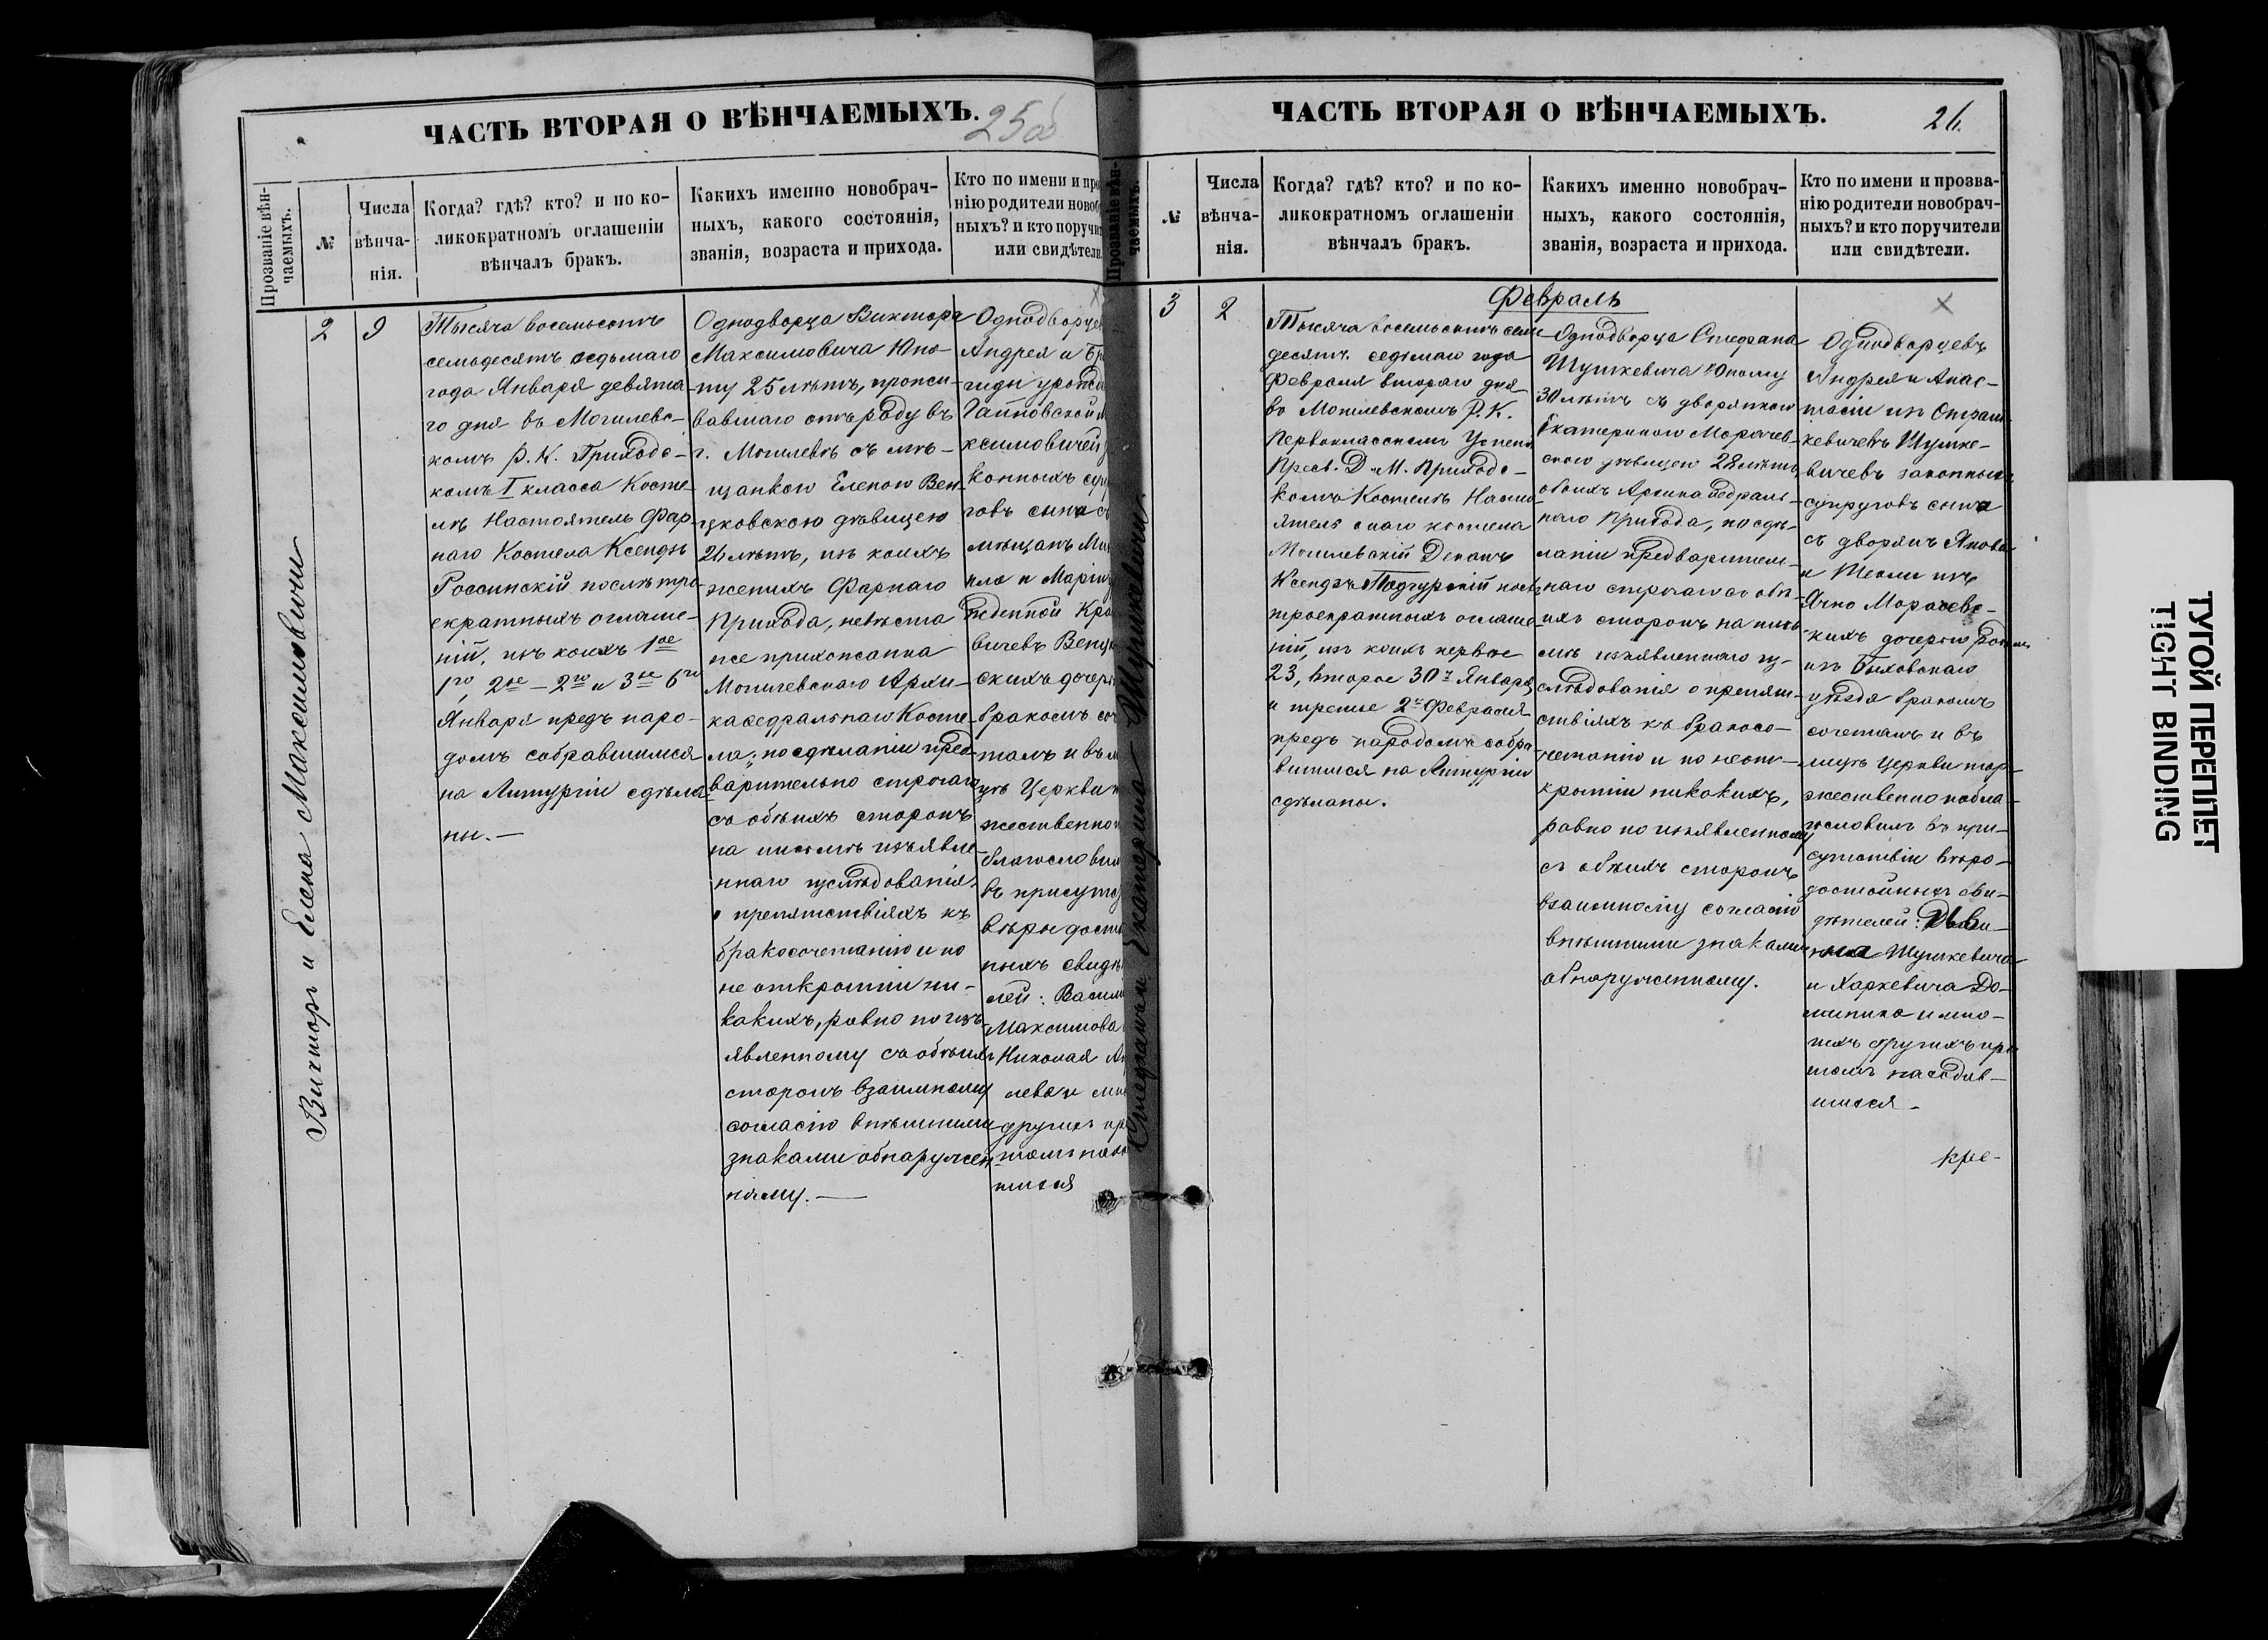 ЧАСТЬ ВТОРАЯ О ВѢНЧАЕМЫХЪ.
25об
Прозваніе вѣн-
чаемыхъ.
№
Числа
вѣнча-
нія.
Когда? гдѣ? кто? и по ко-
ликократномъ оглашеніи
вѣнчалъ бракъ.
Какихъ именно новобрач-
ныхъ, какого состоянія,
званія, возраста и прихода.
Кто по имени и про
нію родители новоб
ныхъ? и кто поручит
или свидѣтели.
Викторъ и Елена Максимовичи
2
9
Тысяча восемьсотъ
семьдесятъ седьмаго
года Января девята-
го дня въ Могилевс-
комъ Р. К. Приходс-
комъ I класса Косте-
лѣ Настоятель Фар-
наго Костела Ксендзъ
Россинскій послѣ тро-
екратныхъ оглаше-
ній, изъ коихъ 1ое
1го, 2ое – 2го и 3ое 6го
Января предъ наро-
домъ собравшимся
на Литургіи сдѣла
ны. —
Однодворца Виктора
Максимовича Юно-
шу 25 лѣтъ, прожи-
вавшаго отъ роду въ
г. Могилевѣ съ мѣ-
щанкою Еленою Вен-
цковскою дѣвицею
26 лѣтъ, изъ коихъ
женихъ Фарнаго
Прихода, невѣста
же прихожанка
Могилевскаго Архи-
каѳедральнаго Косте-
ла; по сдѣланіи пред-
варительно строгаго
съ обѣихъ сторонъ
на письмѣ изъявле-
ннаго изслѣдованія
о препятствіяхъ къ
бракосочетанію и по
не открытіи ни-
какихъ, равно по изъ-
явленному съ обѣихъ
сторонъ взаимному
согласію внѣшними
знаками обнаружен-
ному. —
Однодворцев
Андрея и Бр
гиды урожде
Гайновской М
ксимовичей з
конныхъ супру
говъ сына с
мѣщанъ Ми
ила и Маріи у
жденной Кро
вичевъ Венц
скихъ дочерь
бракомъ соч
талъ и въ л
цѣ Церкви т
жественно п
благословил
въ присутс
вѣры досто
ныхъ свидѣт
лей: Васил
Максимова
Николая
лева и мн
другихъ пр
томъ нахо
шихся
ЧАСТЬ ВТОРАЯ О ВѢНЧАЕМЫХЪ.
26.
Прозваніе вѣн-
чаемыхъ.
№
Числа
вѣнча-
нія.
Когда? гдѣ? кто? и по ко-
ликократномъ оглашеніи
вѣнчалъ бракъ.
Какихъ именно новобрач-
ныхъ, какого состоянія,
званія, возраста и прихода.
Кто по имени и прозва-
нію родители новобрач-
ныхъ? и кто поручители
или свидѣтели.
Стефанъ и Екатерина Шушкевичи
Февраль
3
2
Тысяча восемьсотъ семь-
десятъ седьмаго года
Февраля втораго дня
въ Могилевскомъ Р. К.
Первоклассномъ Успен.
Пресв. Д. М. Приходс-
комъ Костелѣ Насто-
ятель онаго костела
Могилевскій Деканъ
Ксендзъ Подгурскій послѣ
троекратныхъ оглаше-
ній, изъ коихъ первое
23, второе 30го Января
и третіе 2го Февраля
предъ народомъ собра-
вшимся на Литургіи
сдѣланы.
Однодворца Стефана
Шушкевича Юношу
30 лѣтъ съ дворянкою
Екатериною Морачев-
скою дѣвицею 28 лѣтъ,
обоихъ Архикаѳедраль-
наго Прихода, по сдѣ-
ланіи предваритель-
наго строгаго съ обѣ-
ихъ сторонъ на пись-
мѣ изъявленнаго из-
слѣдованія о препят-
ствіяхъ къ бракосо-
четанію и по неот-
крытіи никакихъ,
равно по изъявленному
съ обѣихъ сторонъ
взаимному согласію
внѣшними знаками
обнаруженному.
Однодворцевъ
Андрея и Анас-
тасіи изъ
кевичевъ Шушке-
вичевъ законныхъ
супруговъ сына
съ дворянъ Якова
и Теклы изъ
Морачевс-
кихъ дочерью родомъ
изъ Быховскаго
уѣзда бракомъ
сочеталъ и въ
лицѣ Церкви тор-
жественно побла-
гословилъ въ при-
сутствіи вѣро-
достойныхъ сви-
дѣтелей:
Шушкевича
и Харкевича До-
миника и мно-
гихъ другихъ при
томъ находив-
шихся.
кре-
ТУГОЙ ПЕРЕПЛЕТ
TIGHT BINDING